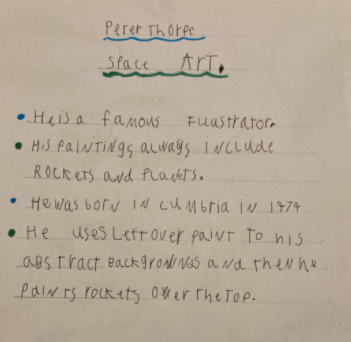 Peter Thorpe
space ArT.
He is a famous Illustrator.
His paintings always include
Rockets and Planets.
He was born in cumbria in 1974
He uses Left over paint To his
abstract Backgrounds and then he
paints rockets over The Top.